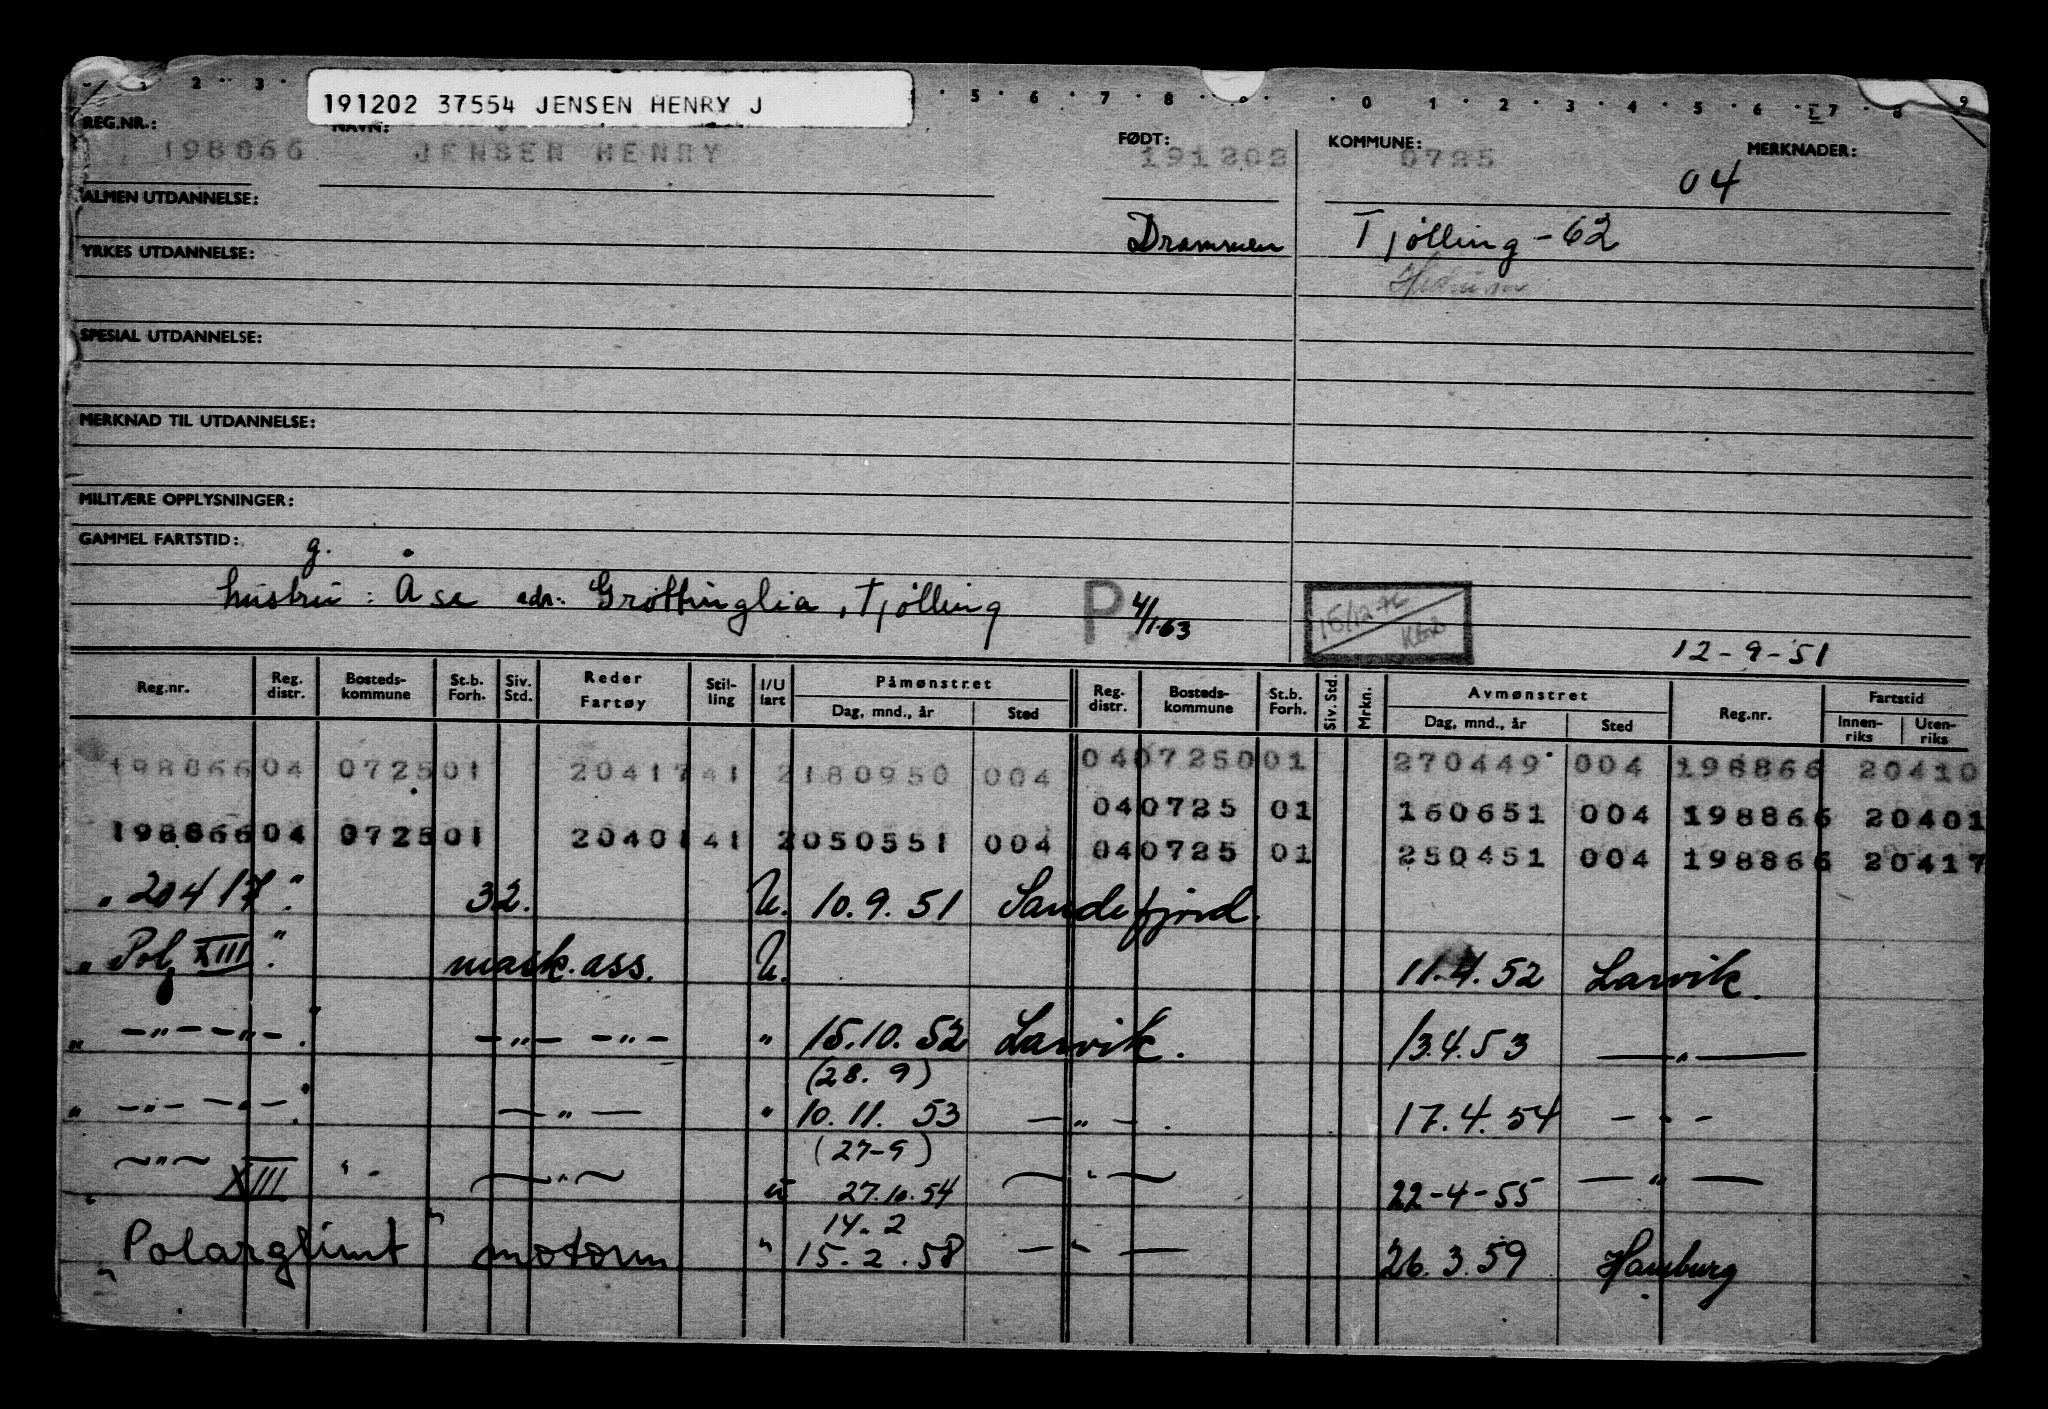 191202 37554 JENSEN HENRY J
REG.NR.: NAVN: FØDT: KOMMUNE: MERKNADER:
198866 JENSEN HENRY 191202 0725 04
ALMEN UTDANNELSE:
Drammen Tjølling - 62
YRKES UTDANNELSE:
SPESIAL UTDANNELSE:
MERKNAD TIL UTDANNELSE:
MILITÆRE OPPLYSNINGER:
GAMMEL FARTSTID:
g.
hustru: Åse adr. Grøttinglia, Tjølling P. 4/1.63
12-9-51
Reg.nr. Reg. distr. Bosteds-kommune St.b. Forh. Siv. Std. Reder Fartøy Stil-ling I/U fart Påmønstret Dag, mnd., år Sted Reg. distr. Bosteds-kommune St.b. Forh. Siv. Std. Mrkn. Avmønstret Dag, mnd., år Sted Reg.nr. Fartstid Innen-riks Uten-riks
198866 04 0725 01 20417 41 2 180950 004 04 0725001 270449 004 198866 20410
04 0725 01 160651 004 198866 20401
198866 04 0725 01 20401 41 2 050551 004 04 0725 01 250451 004 198866 20417
" 20417 " 32. U. 10.9.51 Sandefjord.
" Pol XIII " mask.ass. U. 11.4.52 Larvik.
" -"- -"- " -"- -"- " 15.10.52 Larvik. 13.4.53 -"-
(28.9)
" -"- -"- " -"- " 10.11.53 -"-. 17.4.54 -"-
(27-9)
" -"- XIII " - -"- u 27.10.54 -"- 22-4-55 -"-
14.2
" Polarglimt " motorm " 15.2.58 -"- 26.3.59 Hamburg